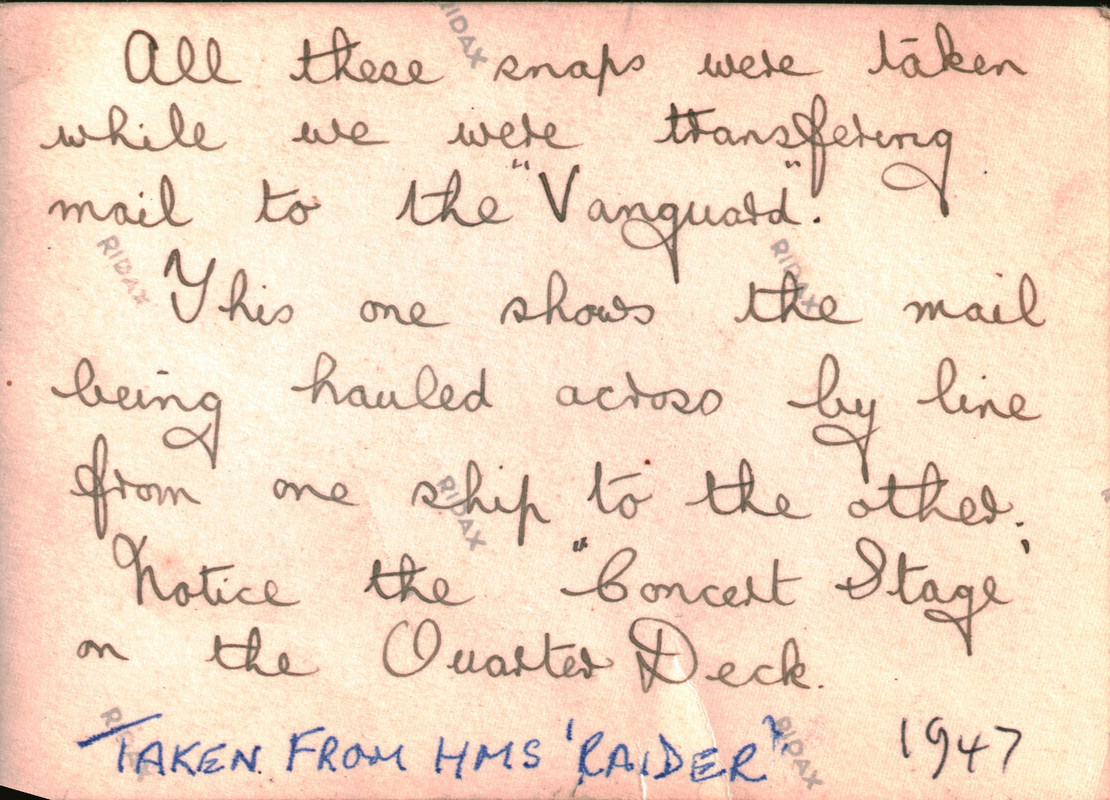 All these snaps were taken
while we were transfering
mail to the "Vanguard".
This one shows the mail
being hauled across by line
from one ship to the other.
Notice the "Concert Stage'
on the Quarter Deck.
TAKEN FROM HMS 'RAIDER' 1947
RIDAX
RIDAX
RIDAX
RIDAX
RIDAX
RIDAX